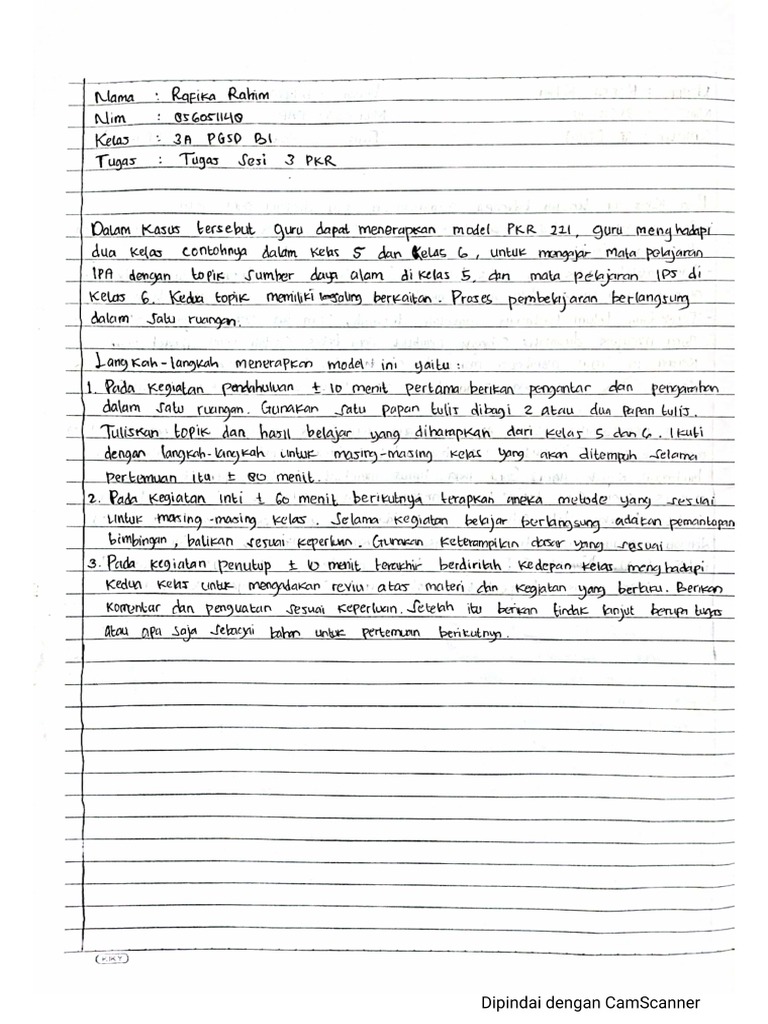 Nama : Rafika Rahim
Nim : 856051140
Kelas : 3A PGSD BI
Tugas : Tugas Sesi 3 PKR
Dalam Kasus tersebut guru dapat menerapkan model PKR 221, guru menghadapi
dua kelas contohnya dalam kelas 5 dan kelas 6, untuk mengajar mata pelajaran
IPA dengan topik sumber daya alam di kelas 5, dan mata pelajaran IPS di
kelas 6. Kedua topik memiliki saling berkaitan. Proses pembelajaran berlangsung
dalam satu ruangan.
Langkah-langkah menerapkan model ini yaitu :
1. Pada kegiatan pendahuluan ± 10 menit pertama berikan pengantar dan pengarahan
dalam satu ruangan. Gunakan satu papan tulis dibagi 2 atau dua papan tulis.
Tuliskan topik dan hasil belajar yang diharapkan dari kelas 5 dan 6. Ikuti
dengan langkah-langkah untuk masing-masing kelas yang akan ditempuh selama
pertemuan itu ± 80 menit.
2. Pada kegiatan inti ± 60 menit berikutnya terapkan aneka metode yang sesuai
untuk masing-masing kelas. Selama kegiatan belajar berlangsung adakan pemantapan
bimbingan, balikan sesuai keperluan. Gunakan keterampilan dasar yang sesuai
3. Pada kegiatan penutup ± 10 menit terakhir berdirilah kedepan kelas menghadapi
kedua kelas untuk mengadakan reviu atas materi dan kegiatan yang berlaku. Berikan
komentar dan penguatan sesuai keperluan. Setelah itu berikan tindak lanjut berupa tugas
atau apa saja sebagai bahan untuk pertemuan berikutnya.
KKY
Dipindai dengan CamScanner